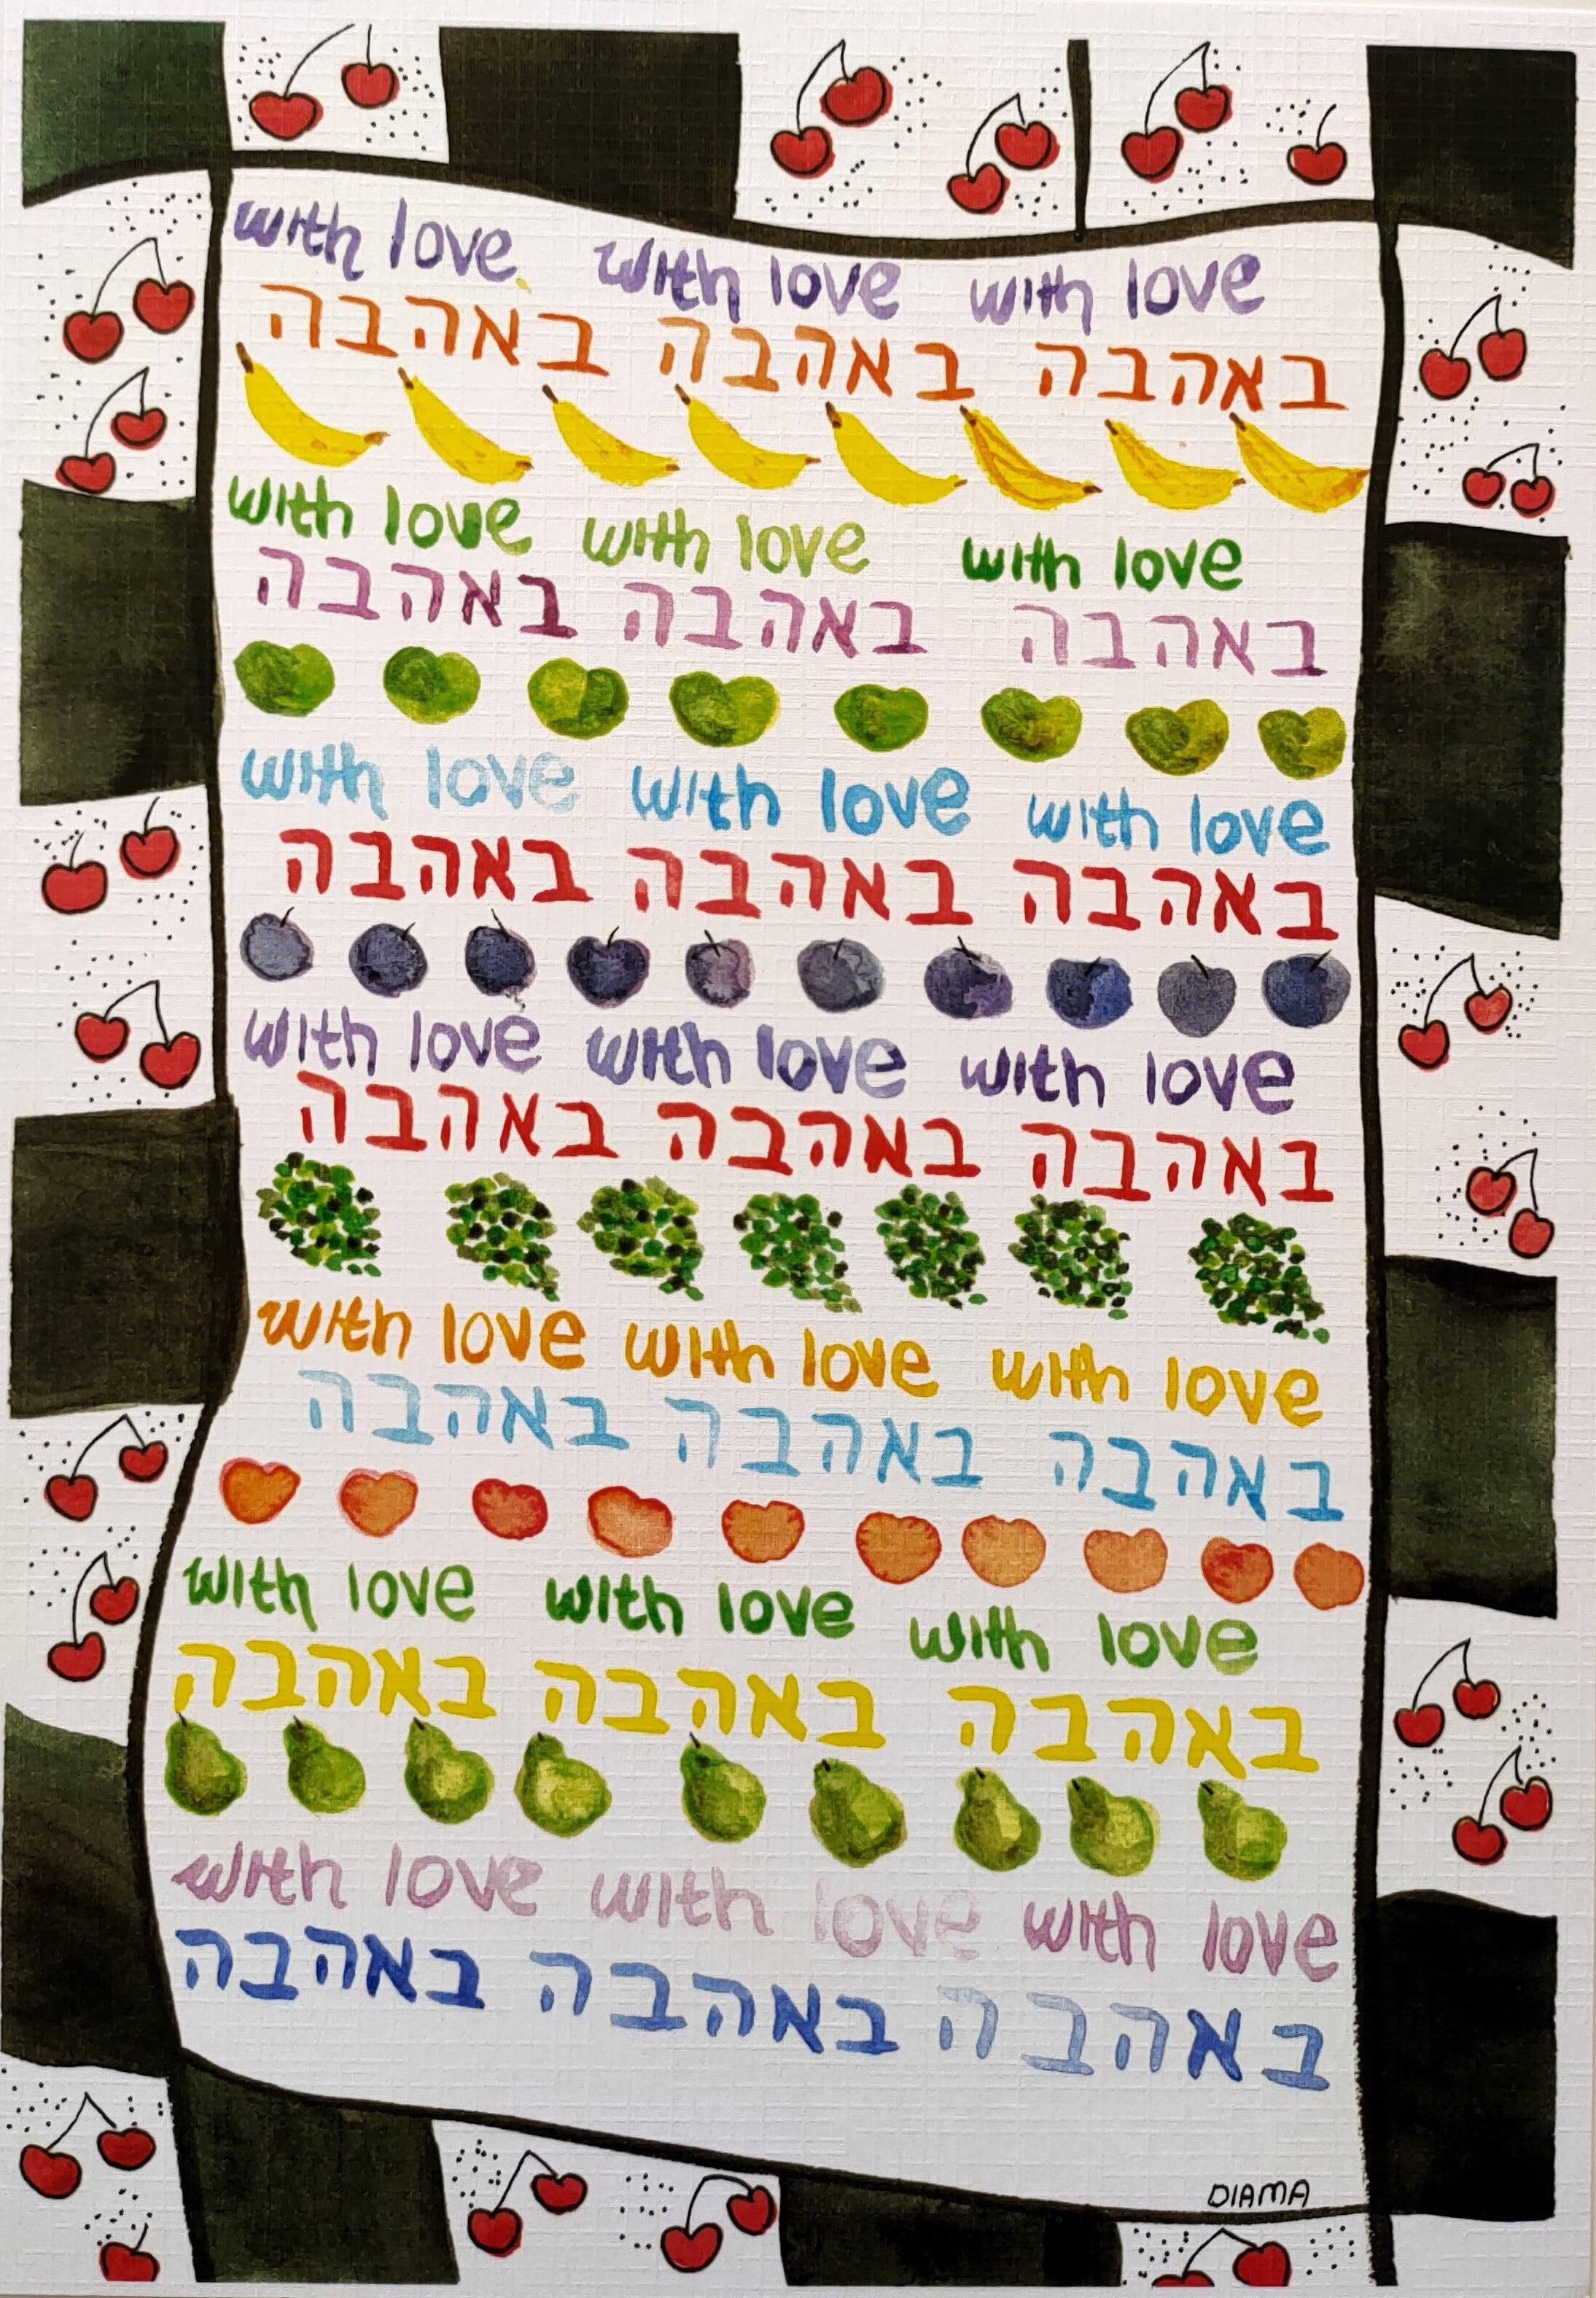 with love with love with love
באהבה באהבה באהבה
with love with love with love
באהבה באהבה באהבה
with love with love with love
באהבה באהבה באהבה
with love with love with love
באהבה באהבה באהבה
with love with love with love
באהבה באהבה באהבה
with love with love with love
באהבה באהבה באהבה
with love with love with love
באהבה באהבה באהבה
DIAMA